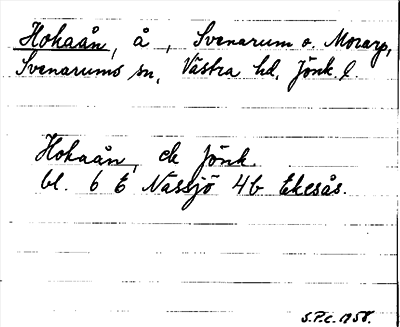 Hokaån, å, Svenarum o. Morarp,
Svenarums sn, Västra hd, Jönk. l.
Hokaån, ek Jönk.
bl. 6 E Nässjö 4b Ekesås.
S.P.c. 1958.